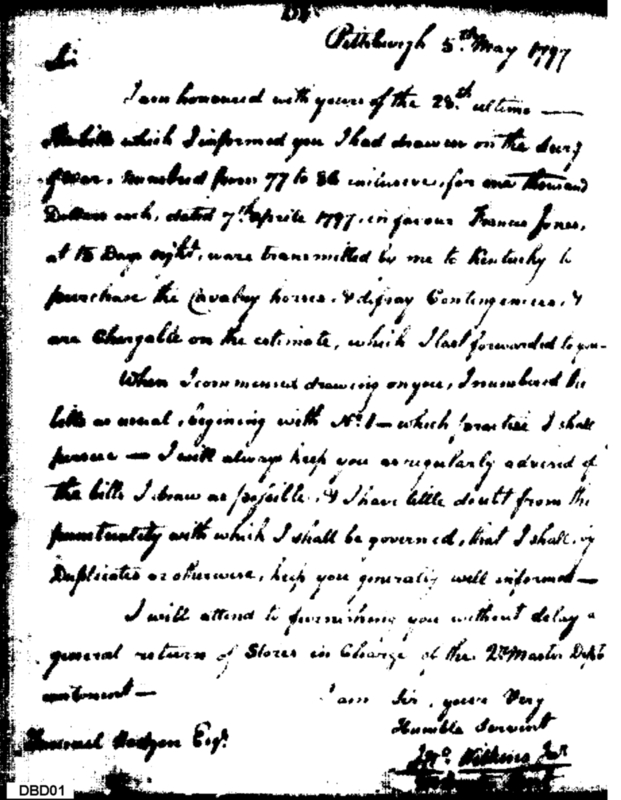 Pittsburgh 5th May 1797
Sir
I am honoured with yours of the 28th ultimo —
The bills which I informed you I had drawn on the Secy
of War, numbered from 77 to 86 inclusive, for one thousand
Dollars each, dated 7th Aprile 1797, in favour Francis Jones,
at 15 Days sight, ware transmitted by me to Kentucky to
purchase the Cavalry horses, & difray Contingencies, &
are Chargable on the estimate, which I last forwarded to you —
When I commenced drawing on you, I numbered the
bills as usual, begining with No. 1 — which practice I shall
pursue — I will always keep you as regularly advised of
the bills I draw as possible, & I have little doubt from the
punctuality with which I shall be governed, that I shall, by
Duplicates or otherwise, keep you generally well informed —
I will attend to furnishing you without delay a
general return of Stores in Charge of the Qr Master
— I am Sir, your Very
Humble Servant
Samuel Hodgdon Esqr.
Jno. Wilkins Jur
DBD01